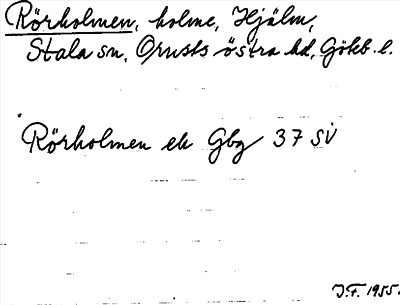 Rörholmen, holme, Hjälm,
Stala sn, Orusts östra hd, Göteb. l.
Rörholmen ek Gbg 37 SV
J.F. 1955.